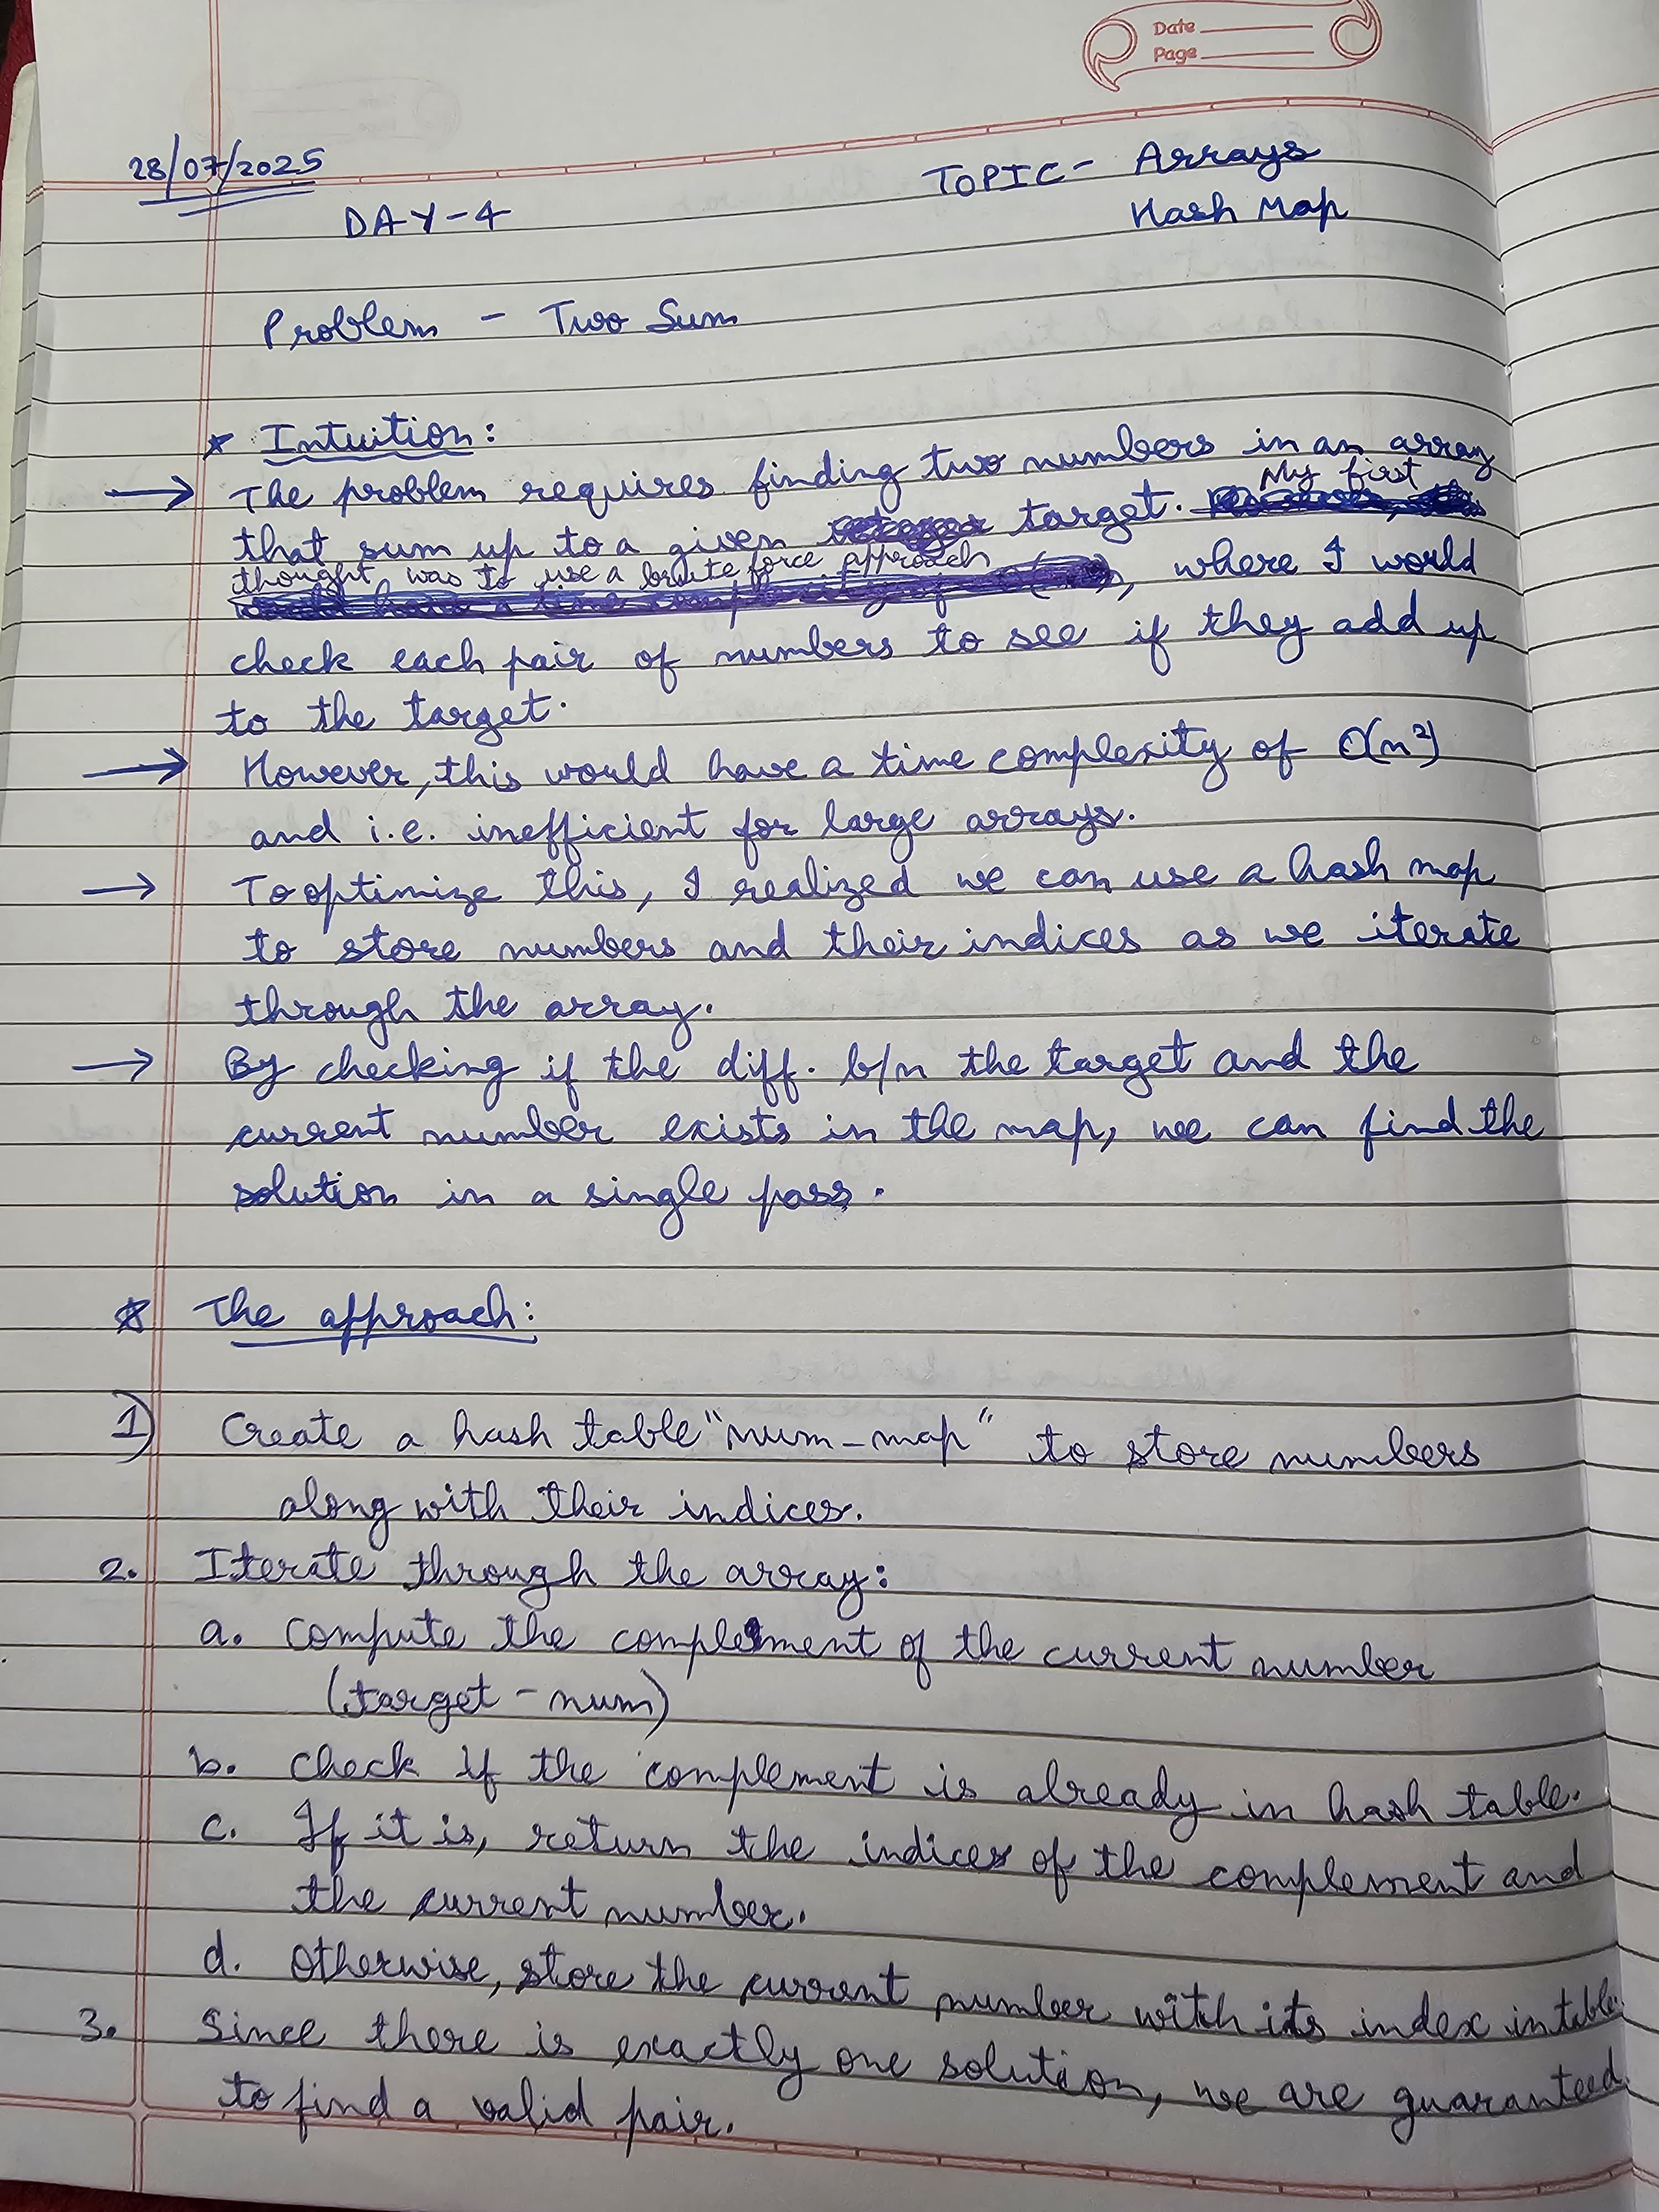 Date
Page
28/07/2025
TOPIC - Arrays
DAY-4
Hash Map
Problem - Two Sum
* Intuition:
→ The problem requires finding two numbers in an array
that sum up to a given target. My first
thought was to use a brute force approach, where I would
check each pair of numbers to see if they add up
to the target.
→ However, this would have a time complexity of O(n²)
and i.e. inefficient for large arrays.
→ To optimize this, I realized we can use a hash map
to store numbers and their indices as we iterate
through the array.
→ By checking if the diff. b/n the target and the
current number exists in the map, we can find the
solution in a single pass.
* The approach:
1) Create a hash table "num-map" to store numbers
along with their indices.
2. Iterate through the array:
a. Compute the complement of the current number
(target - num)
b. check if the complement is already in hash table.
c. If it is, return the indices of the complement and
the current number.
d. Otherwise, store the current number with its index in table.
3. Since there is exactly one solution, we are guaranteed
to find a valid pair.